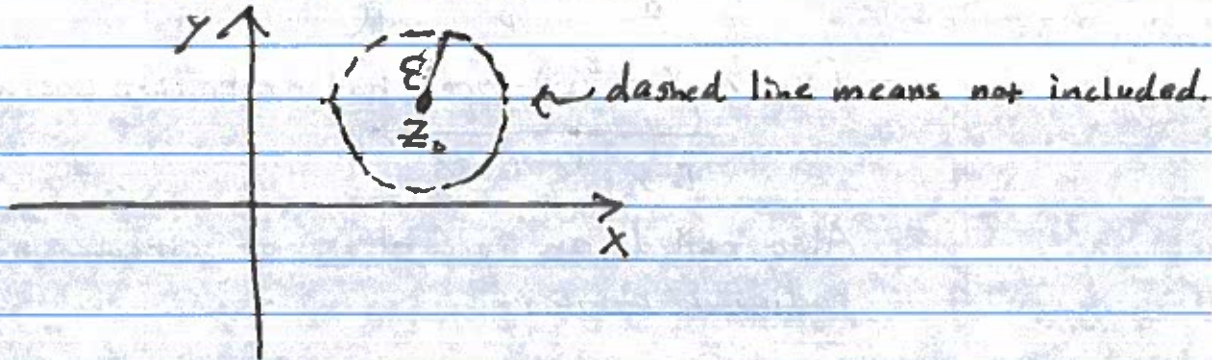 y
ε
dashed line means not included.
Z₀
X